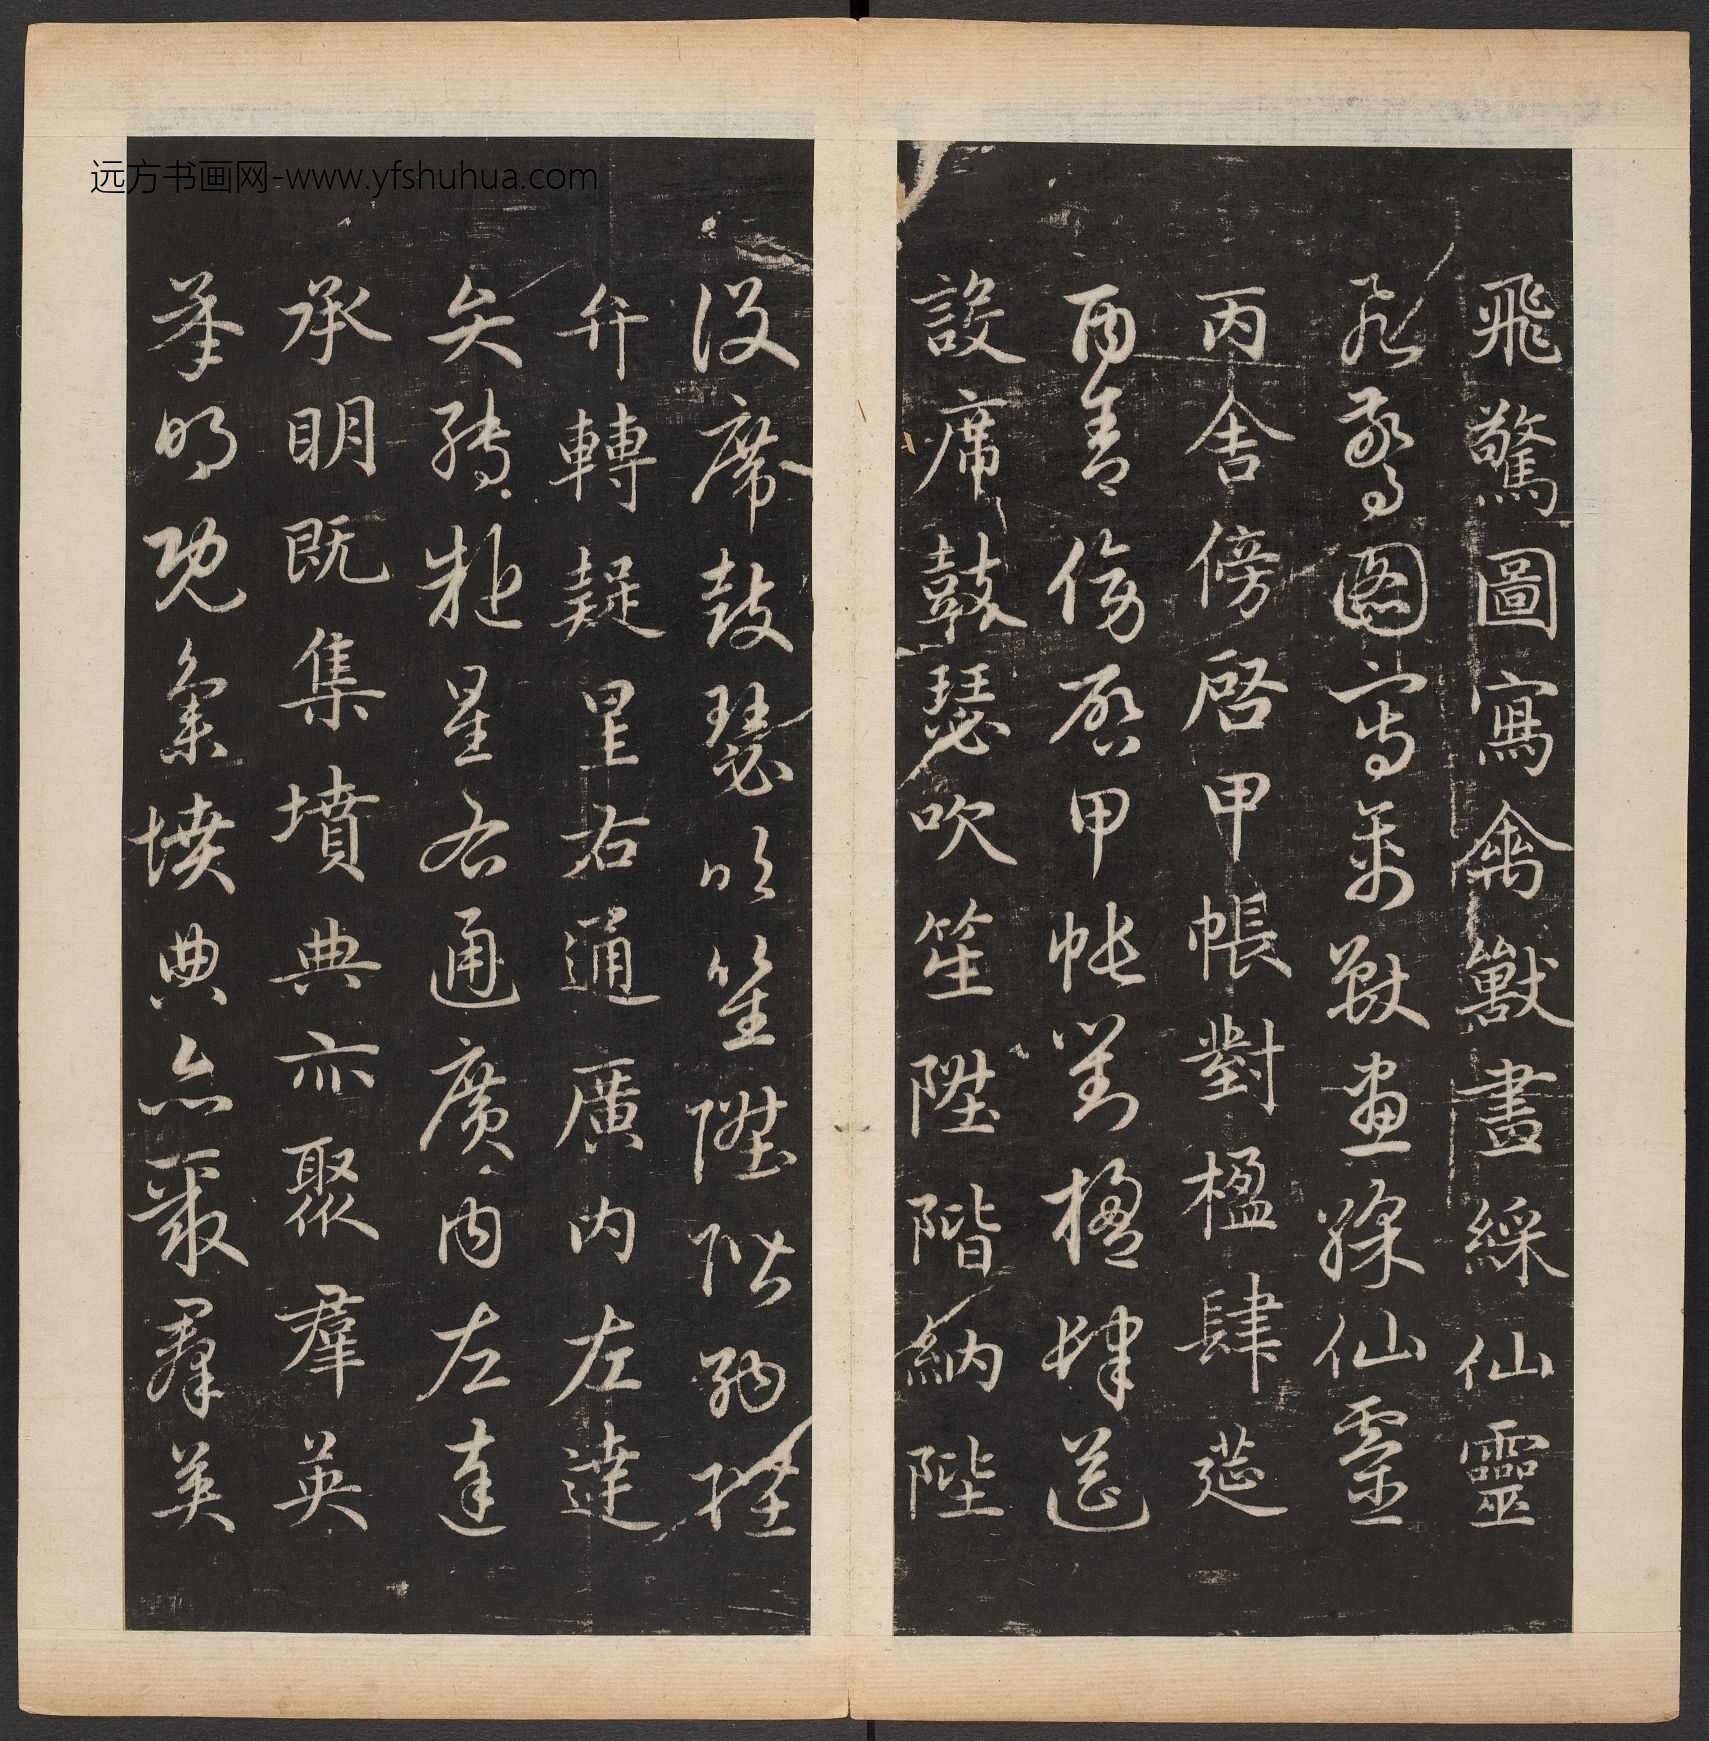 远方书画网-www.yfshuhua.com
飛驚圖寫禽獸畫綵仙靈
飛驚圖寫禽獸畫綵仙靈
丙舍傍啓甲帳對楹肆莚
丙舍傍啓甲帳對楹肆筵
設席鼓瑟吹笙陞階納陛
設席鼓瑟吹笙陞階納陛
弁轉疑星右通廣内左達
弁轉疑星右通廣内左達
承明既集墳典亦聚羣英
承明既集墳典亦聚羣英